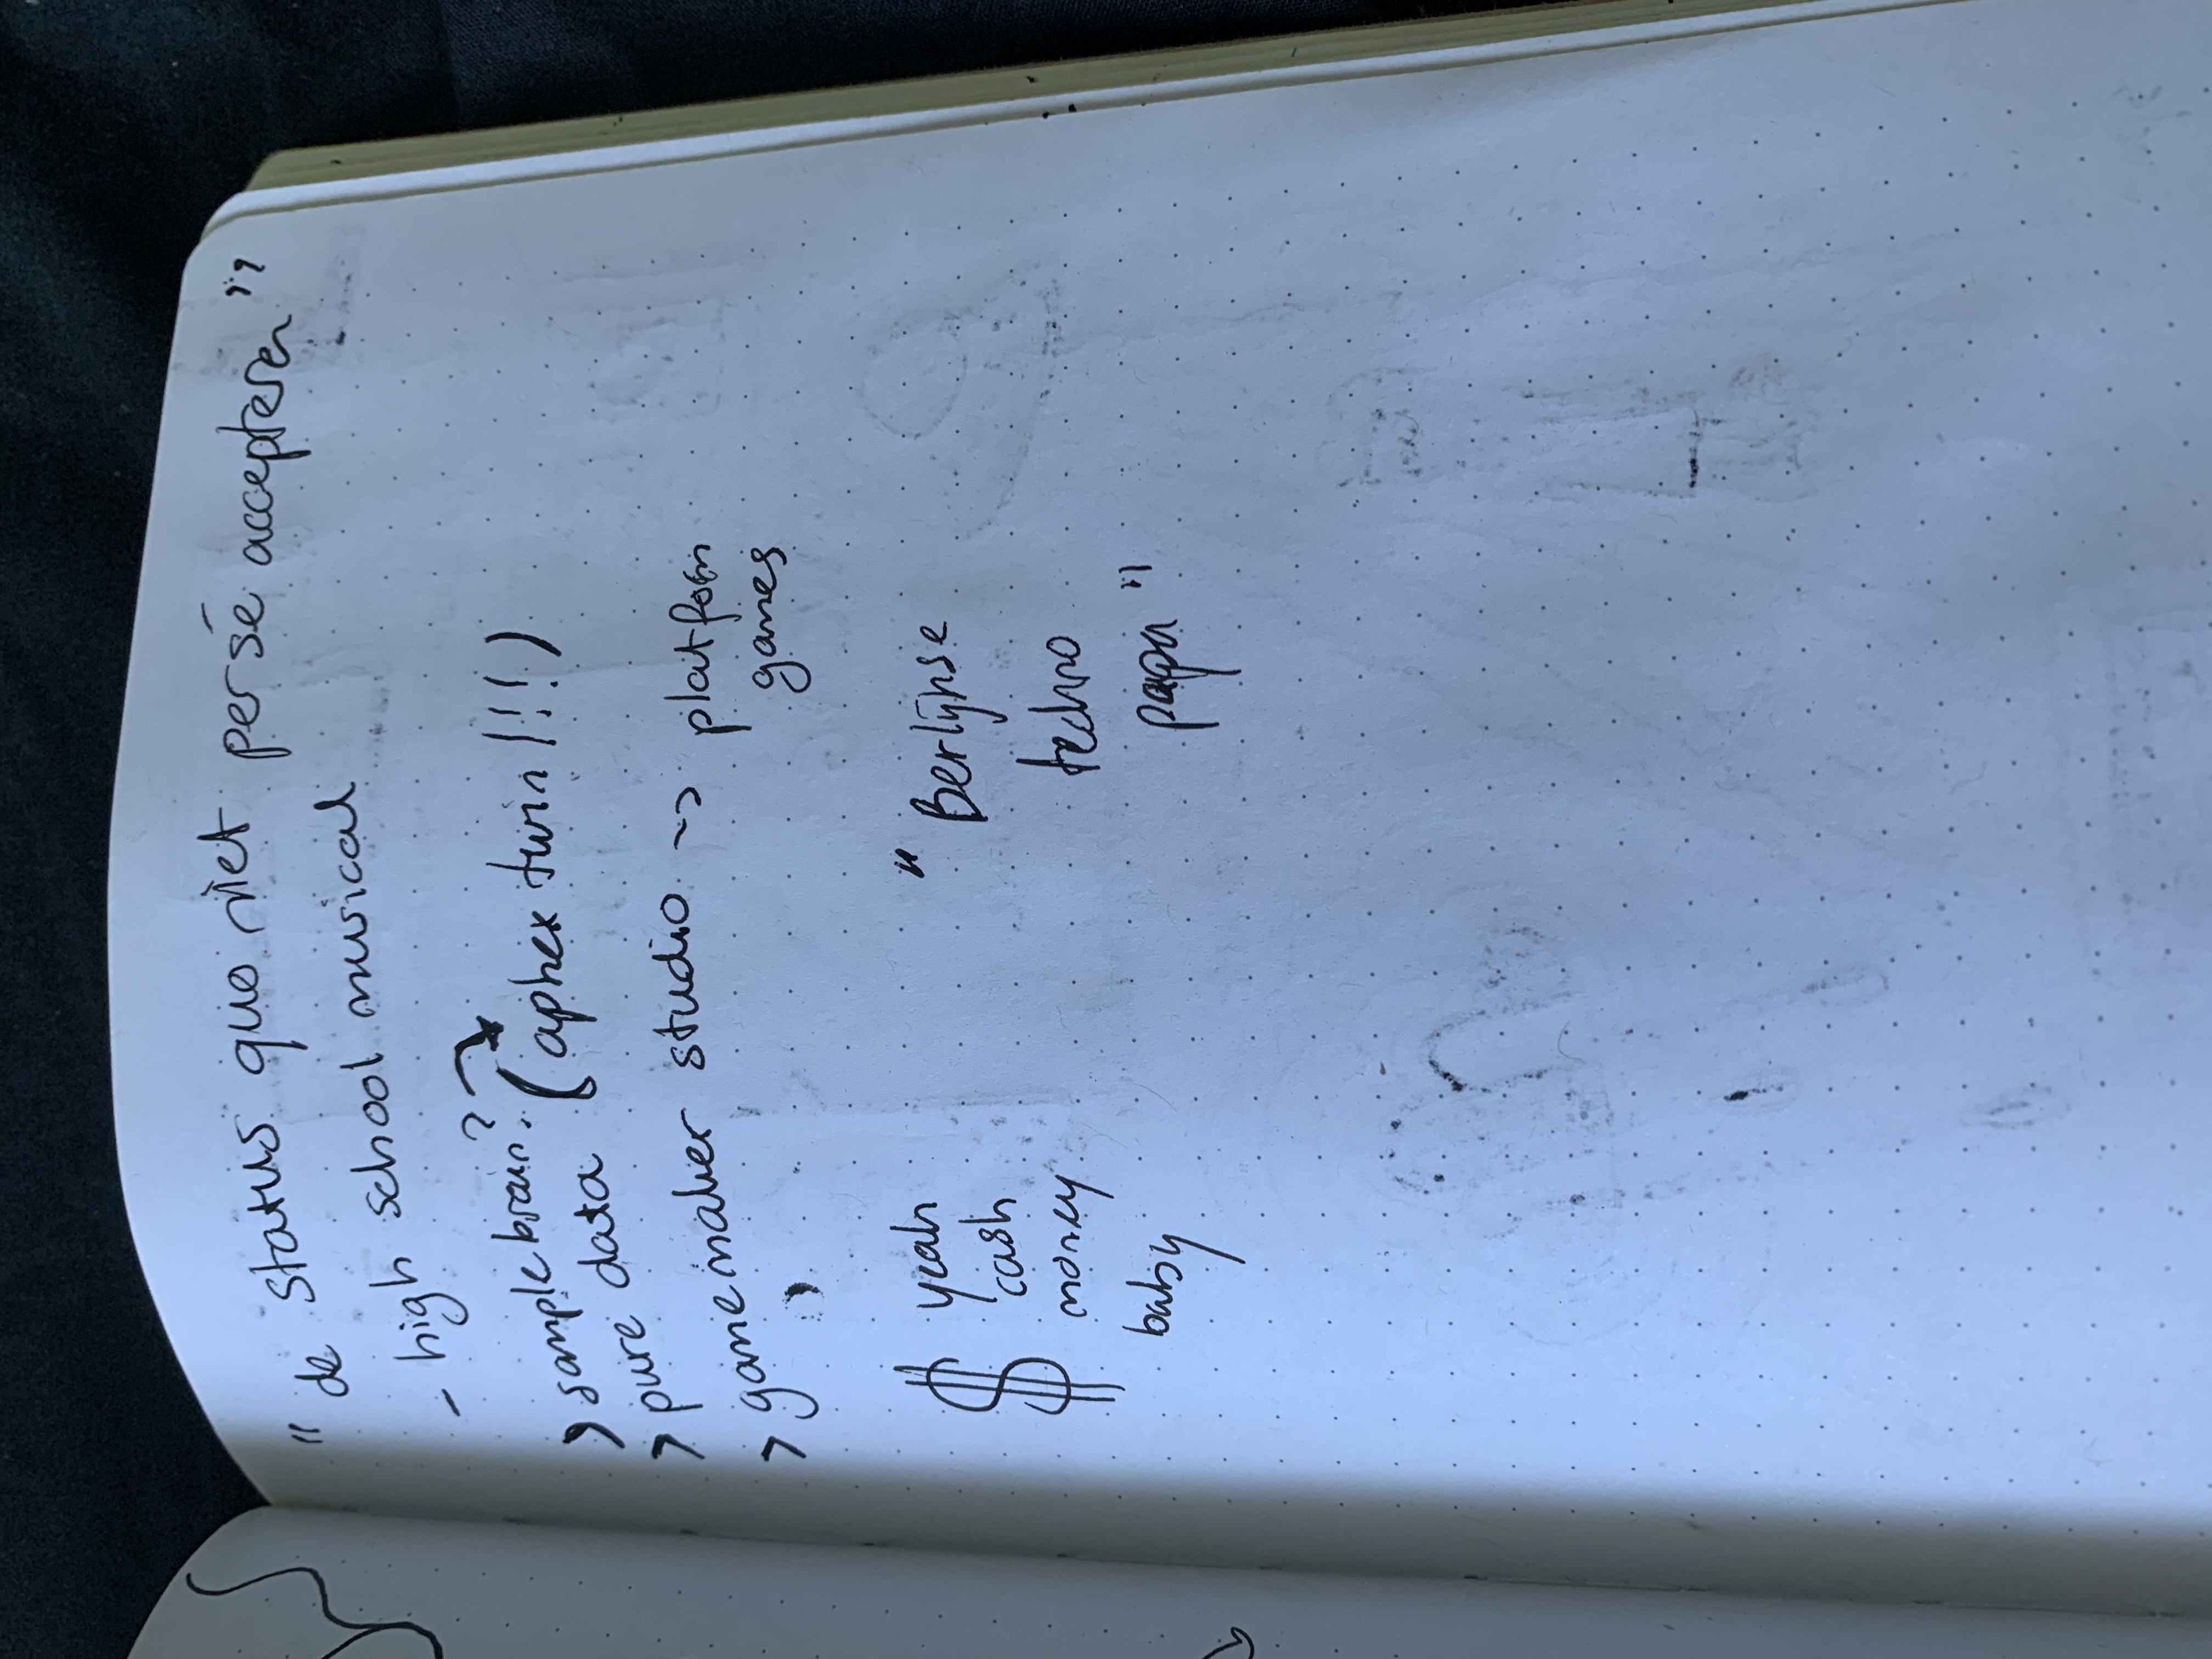 " de status quo niet persé accepteren "
- high school musical
> samplebrain? (aphex twin!!!!)
> pure data
> gamemaker studio ~> platform
games
$ yeah
cash
money
baby
" Berlijnse
techno
papa "